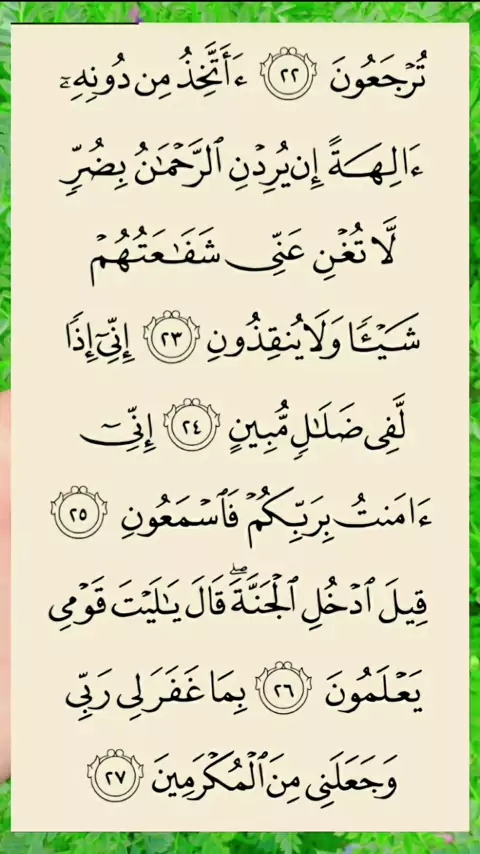 تُرۡجَعُونَ ٢٢ ءَأَتَّخِذُ مِن دُونِهِۦٓ
ءَالِهَةً إِن يُرِدۡنِ ٱلرَّحۡمَٰنُ بِضُرّٖ
لَّا تُغۡنِ عَنِّي شَفَٰعَتُهُمۡ
شَيۡـٔٗا وَلَا يُنقِذُونِ ٢٣ إِنِّيٓ إِذٗا
لَّفِي ضَلَٰلٖ مُّبِينٍ ٢٤ إِنِّيٓ
ءَامَنتُ بِرَبِّكُمۡ فَٱسۡمَعُونِ ٢٥
قِيلَ ٱدۡخُلِ ٱلۡجَنَّةَۖ قَالَ يَٰلَيۡتَ قَوۡمِي
يَعۡلَمُونَ ٢٦ بِمَا غَفَرَ لِي رَبِّي
وَجَعَلَنِي مِنَ ٱلۡمُكۡرَمِينَ ٢٧